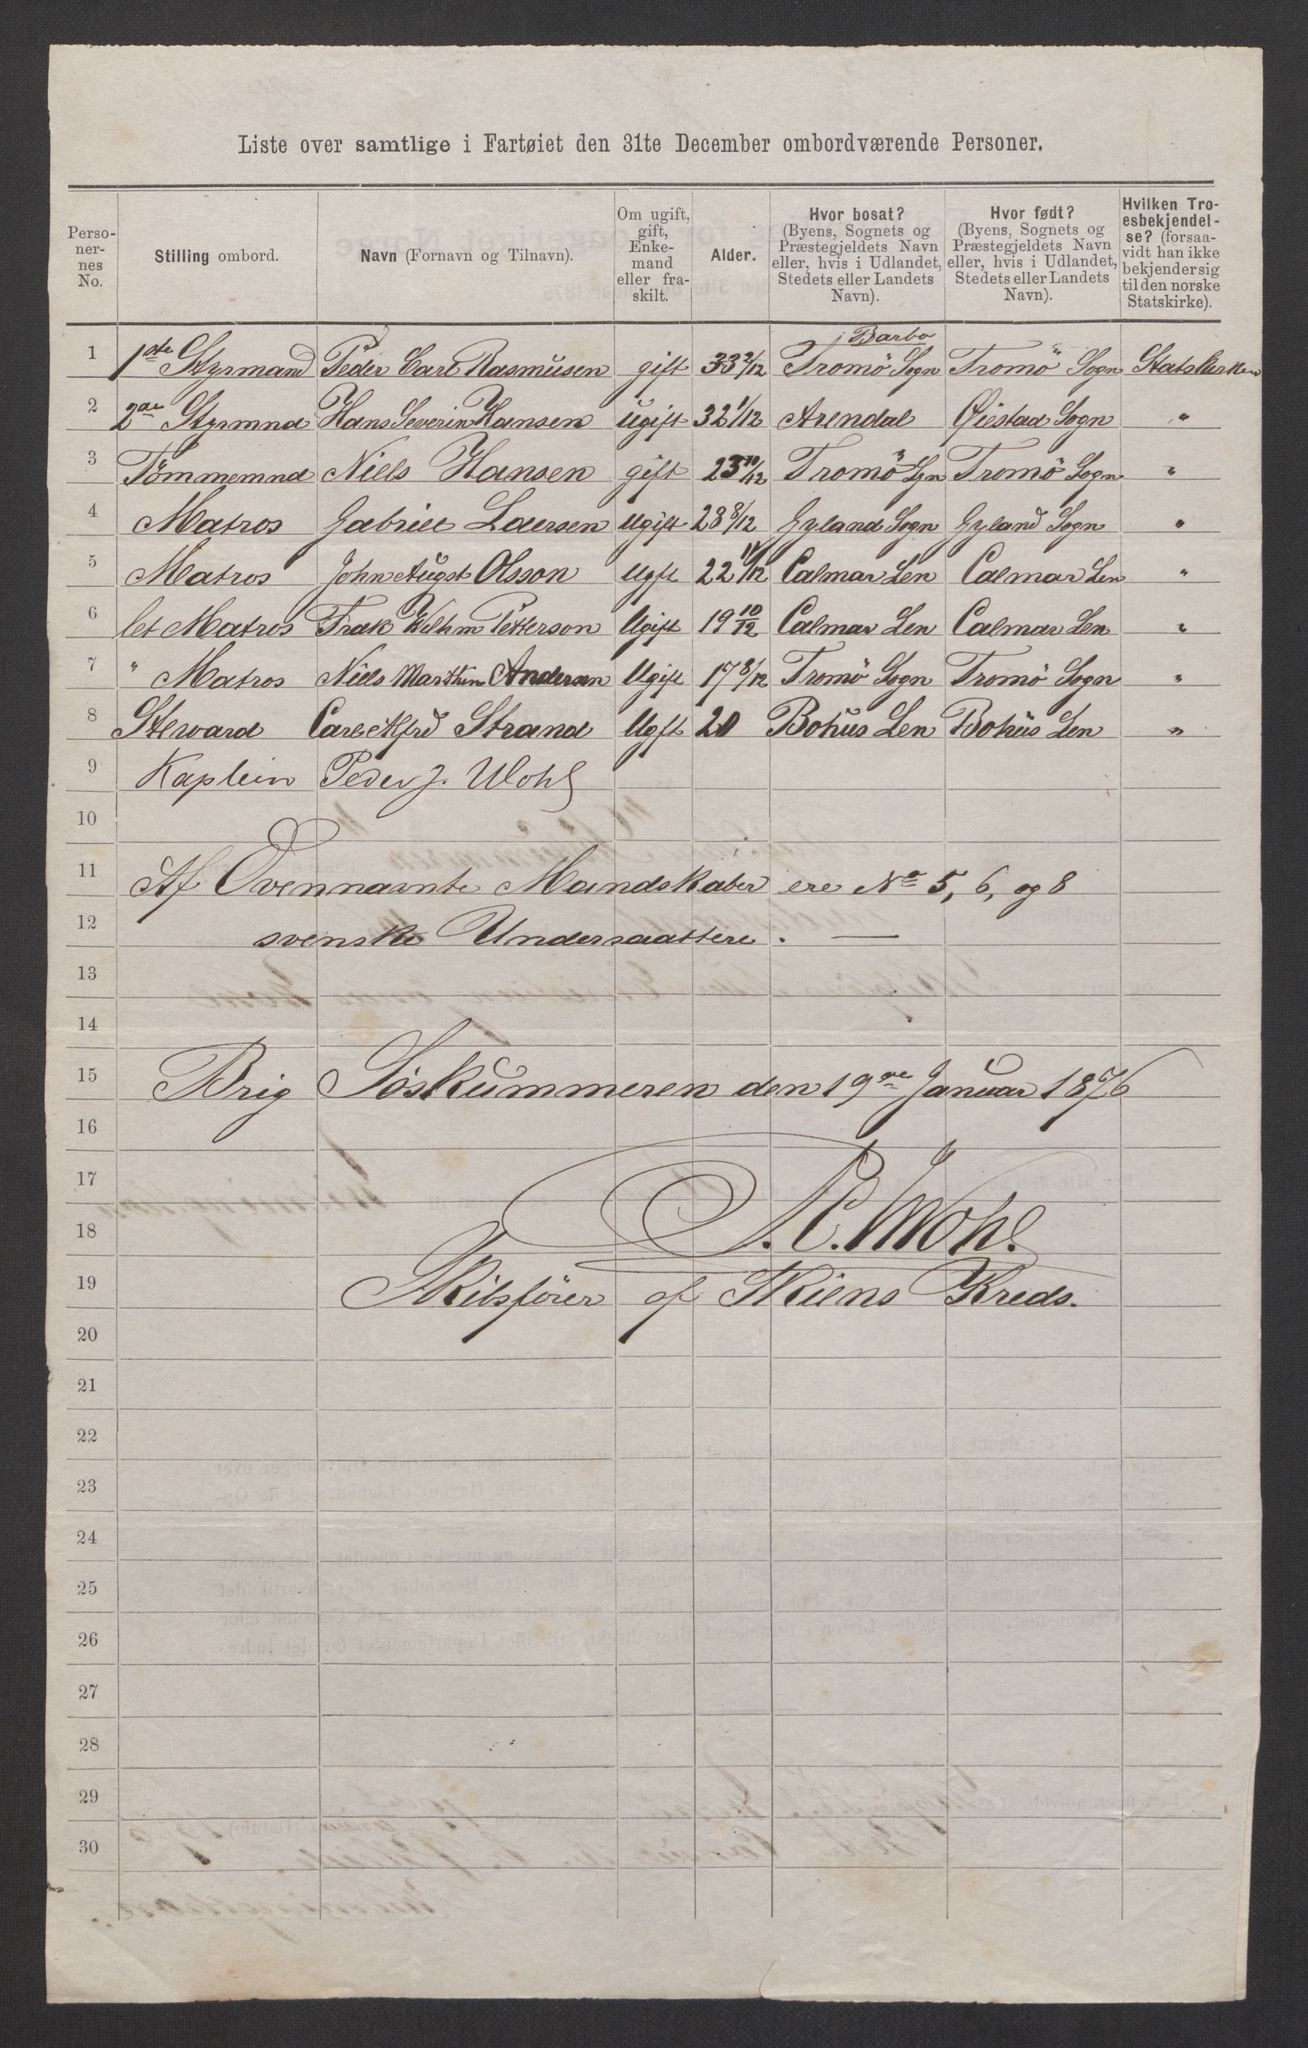 Liste over samtlige i Fartøiet den 31te December ombordværende Personer.
Personernes No. | Stilling ombord. | Navn (Fornavn og Tilnavn). | Om ugift, gift, Enkemand eller fraskilt. | Alder. | Hvor bosat? (Byens, Sognets og Præstegjeldets Navn eller, hvis i Udlandet, Stedets eller Landets Navn). | Hvor født? (Byens, Sognets og Præstegjeldets Navn eller, hvis i Udlandet, Stedets eller Landets Navn). | Hvilken Troesbekjendelse? (forsaavidt han ikke bekjender sig til den norske Statskirke).
Barbo
1 1ste Styrmand Peder Carl Rasmusen gift 33 2/12 Tromö Sogn Tromö Sogn Statskerken
2 2den Styrmnd Hans Severin Hansen ugift 32 1/12 Arendal Øiestad Sogn "
3 Tömmemnd Niels Hansen gift 23 10/12 Tromö Sgn Tromö Sogn "
4 Matros Gabriel Laersen Ugift 28 8/12 Gyland Sogn Gyland Sogn "
5 Matros John Augst Olsson Ugft 22 11/12 Calmar Len Calmar Len "
6 let Matros Frak Wilhm Petterson Ugift 19 10/12 Calmar Len Calmar Len "
7 " Matros Niels Marthin Andersen Ugift 17 8/12 Tromö Sogn Tromö Sogn "
8 Steward Carl Strand Ugft 20 Bohus Len Bohus Len "
9 Kaptein Peder J. Wohl
10
11 Af Ovennævnte Mandskaber ere No 5, 6, og 8
12 svenske Undersaattere. —
13
14
15 Brig Söskummeren den 19de Januar 1876
16
17
18 P. Wohl
19 Skibsförer af Skiens Kreds.
20
21
22
23
24
25
26
27
28
29
30